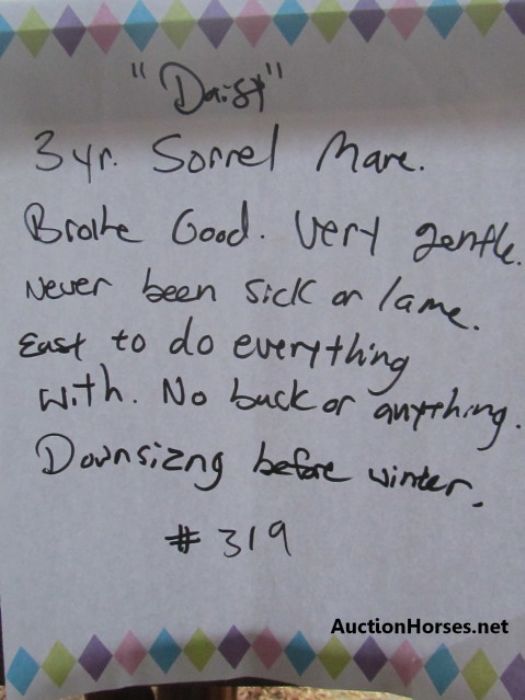 "Daisy"
3 yr. Sorrel Mare.
Broke Good. Very gentle.
Never been sick or lame.
Easy to do everything
with. No buck or anything.
Downsizng before winter.
# 319
AuctionHorses.net